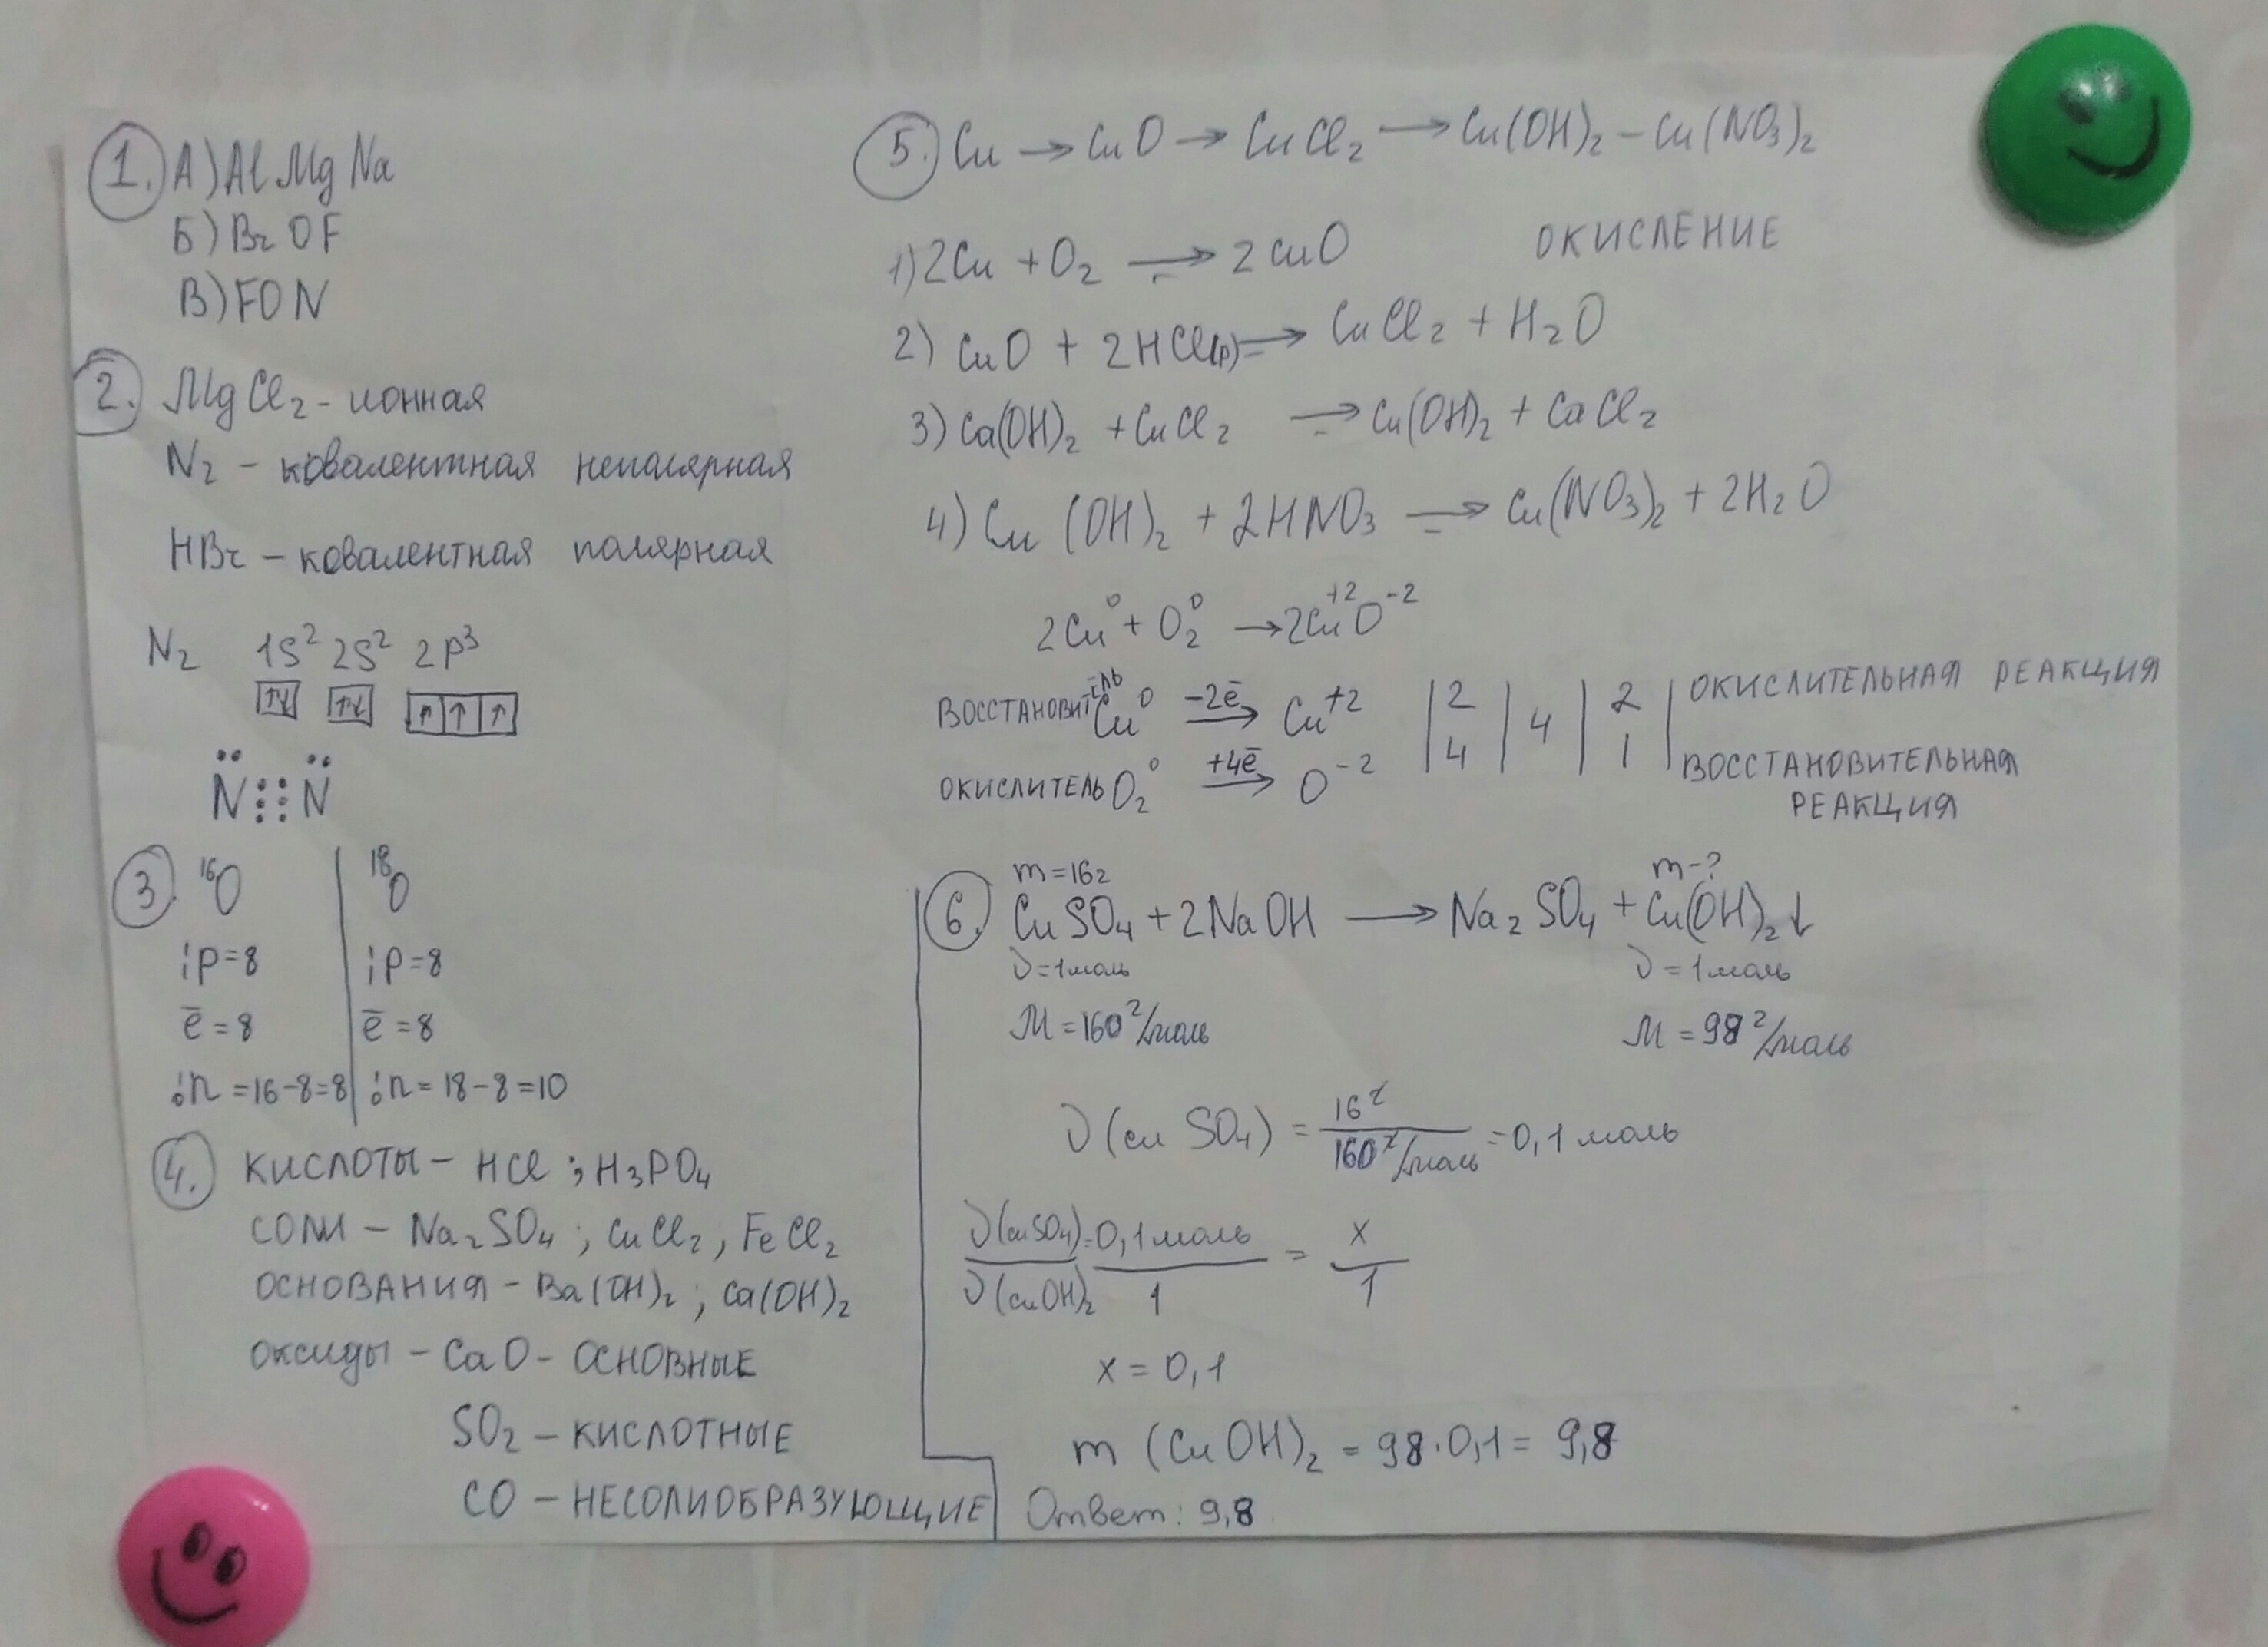 1. А) Al Mg Na
Б) Br O F
В) F O N
2. MgCl₂ - ионная
N₂ - ковалентная неполярная
HBr - ковалентная полярная
N₂ 1S² 2S² 2p³
↑↓ ↑↓ ↑ ↑ ↑
N⋮⋮N
3. ¹⁶O ¹⁸O
¡p=8 ¡p=8
ē=8 ē=8
¡n=16-8=8 ¡n=18-8=10
4. КИСЛОТЫ - HCl; H₃PO₄
СОЛИ - Na₂SO₄; CuCl₂, FeCl₂
ОСНОВАНИЯ - Ba(OH)₂; Ca(OH)₂
Оксиды - CaO - ОСНОВНЫЕ
SO₂ - КИСЛОТНЫЕ
CO - НЕСОЛИОБРАЗУЮЩИЕ
5. Cu → CuO → CuCl₂ → Cu(OH)₂ - Cu(NO₃)₂
1) 2Cu + O₂ → 2CuO ОКИСЛЕНИЕ
2) CuO + 2HCl(р) → CuCl₂ + H₂O
3) Ca(OH)₂ + CuCl₂ → Cu(OH)₂ + CaCl₂
4) Cu(OH)₂ + 2HNO₃ → Cu(NO₃)₂ + 2H₂O
2Cu⁰ + O₂⁰ → 2Cu⁺²O⁻²
ВОССТАНОВИТЕЛЬ Cu⁰ -2ē → Cu⁺² | 2 | 4 | 2 | ОКИСЛИТЕЛЬНАЯ РЕАКЦИЯ
ОКИСЛИТЕЛЬ O₂⁰ +4ē → O⁻² | 4 | | 1 | ВОССТАНОВИТЕЛЬНАЯ
РЕАКЦИЯ
m=16г m-?
6. CuSO₄ + 2NaOH → Na₂SO₄ + Cu(OH)₂↓
ν=1моль ν=1моль
M=160г/моль M=98г/моль
ν(CuSO₄) = 16г/160г/моль = 0,1моль
ν(CuSO₄) = 0,1моль = x
ν(CuOH)₂ 1 1
x=0,1
m(CuOH)₂ = 98·0,1 = 9,8
Ответ: 9,8